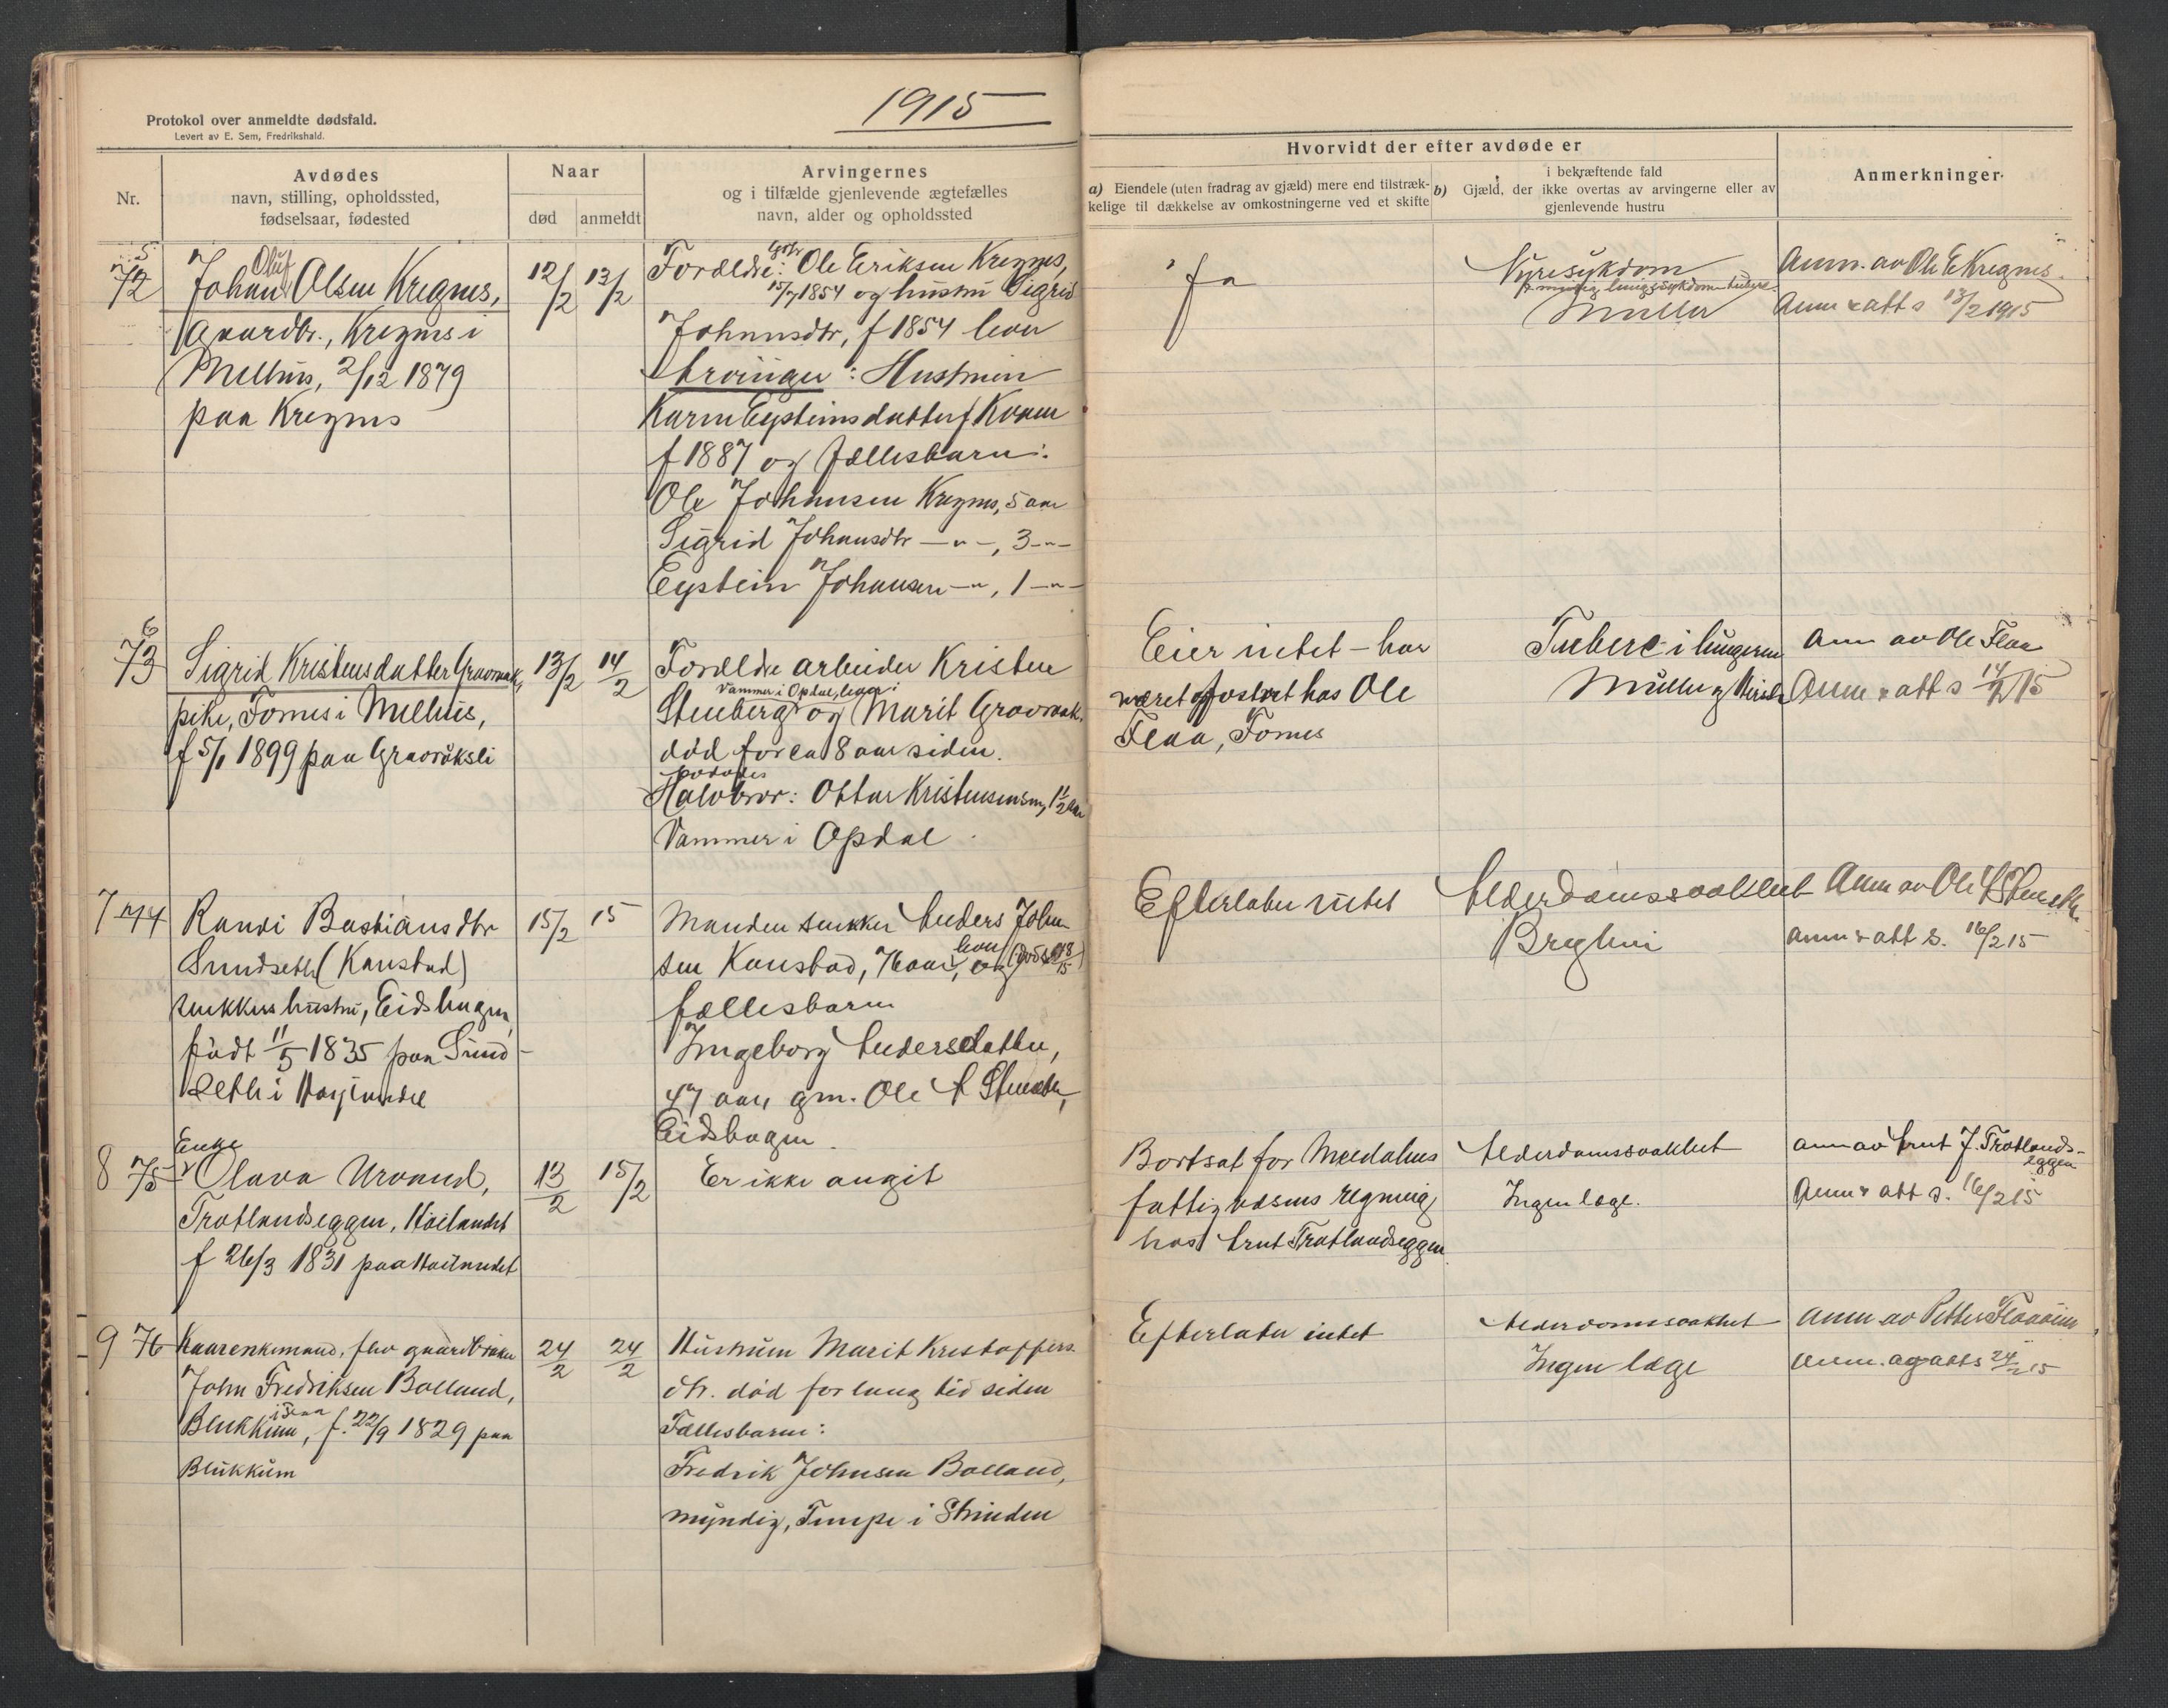 1915
Protokol over anmeldte dødsfald.
Levert av E. Sem, Fredrikshald.
Nr.
Avdødes
navn, stilling, opholdssted,
fødselsaar, fødested
Naar
død
anmeldt
Arvingernes
og i tilfælde gjenlevende ægtefælles
navn, alder og opholdssted
Hvorvidt der efter avdøde er
a) Eiendele (uten fradrag av gjæld) mere end tilstræk-
kelige til dækkelse av omkostningerne ved et skifte
b)
i bekræftende fald
Gjæld, der ikke overtas av arvingerne eller av
gjenlevende hustru
Anmerkninger
5
72
Johan Oluf Olsen Kregnes,
Gaardbr., Kregnes i
Melhus, 2/12 1879
paa Kregnes
12/2
13/2
Forældre: Gbr Ole Eriksen Kregnes,
15/7 1854 og hustru Sigrid
Johnsdtr, f 1854 lever
Arvinger: Hustruen
Karen Eysteinsdatter f Kvam
f 1887 og fællesbarn:
Ole Johansen Kregnes, 5 aar
Sigrid Johansdtr —"—, 3 —"—
Eystein Johansen —"—, 1 —"—
Ja
Nyresykdom
Müller
Anm. av Ole E Kregnes.
Anm & att s 13/2 1915
6
73
Sigrid Kristensdatter Gravraak,
pike, Fornes i Melhus,
f 5/1 1899 paa Gravråksli
13/2
14/2
Forældre arbeider Kristen
Vammer i Opdal, lever
Stenberg og Marit Gravraak.
død for ca 8 aar siden.
Halvbror: Ottar Kristensen, 1 1/2 aar
Vammer i Opdal
Eier intet - har
været opfostret hos Ole
Flaa, Fornes
Tuberc. i lungerne
Müller og
Anm av Ole Flaa
Anm & att s 14/2 15
7
74
Randi Bastiansdtr
Sundseth (Kanstad)
snekkers hustru, Eidshagen,
født 11/5 1835 paa Sund-
seth i
15/2
15
Manden snekker Anders John
sen Kanstad, 76 aar, lever, og
fællesbarn
Ingeborg Andersdatter,
47 aar, gm. Ole A Stenseth,
Eidshagen.
Efterlater intet
Alderdomssvakhet
Bryhni
Anm av Ole A Stenseth.
anm & att s. 16/2 15
8
75
Enke
Olava Urvand,
Trotlandseggen, Høilandet
f 26/3 1831 paa Høilandet
13/2
15/2
Er ikke angit
Bortsat for Meldalens
fattigvæsens regning
hos Arnt Trotlandseggen
Alderdomssvakhet
Ingen læge.
anm av Arnt J. Trotlands-
eggen
Anm & att s. 16/2 15
9
76
Kaarenkemand, fhv gaardbruker
John Fredriksen Bolland,
Blekkum, i Flaa f. 22/9 1829 paa
Blekkum
24/2
24/2
Hustruen Marit Kristoffers
dtr. død for lang tid siden
Fællesbarn:
Fredrik Johnsen Bolland,
myndig, Tempe i Strinden
Efterlater intet
Alderdomssvakhet
Ingen læge
anm av Petter
anm. og att s 24/2 15